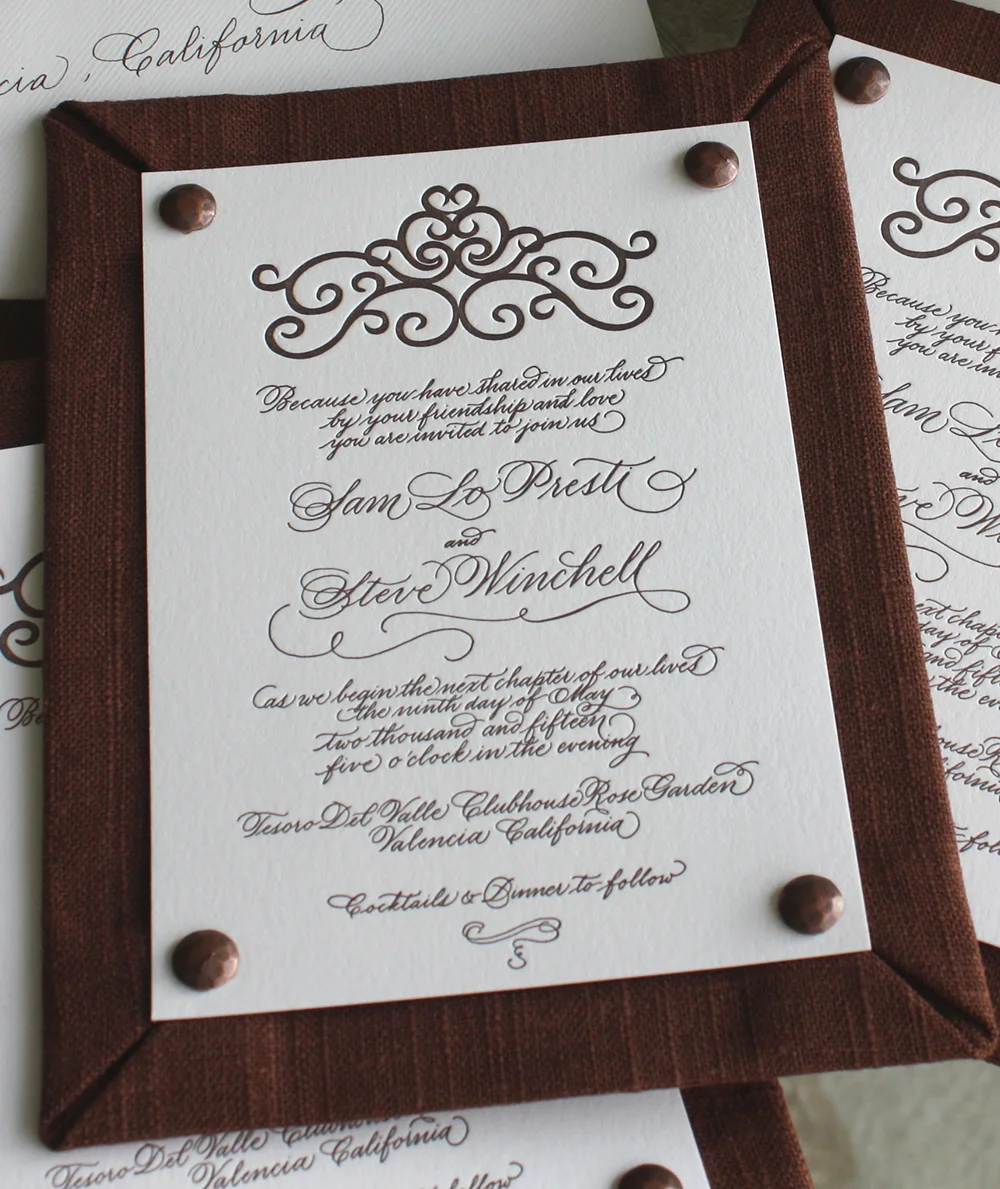 , California
Because you have shared in our lives
by your friendship and love
you are invited to join us
Sam Lo Presti
and
Steve Winchell
as we begin the next chapter of our lives
the ninth day of May
two thousand and fifteen
five o'clock in the evening
Tesoro Del Valle Clubhouse Rose Garden
Valencia California
Cocktails & Dinner to follow
Because you
by your
you are
and
Tesoro Del Valle
Valencia California